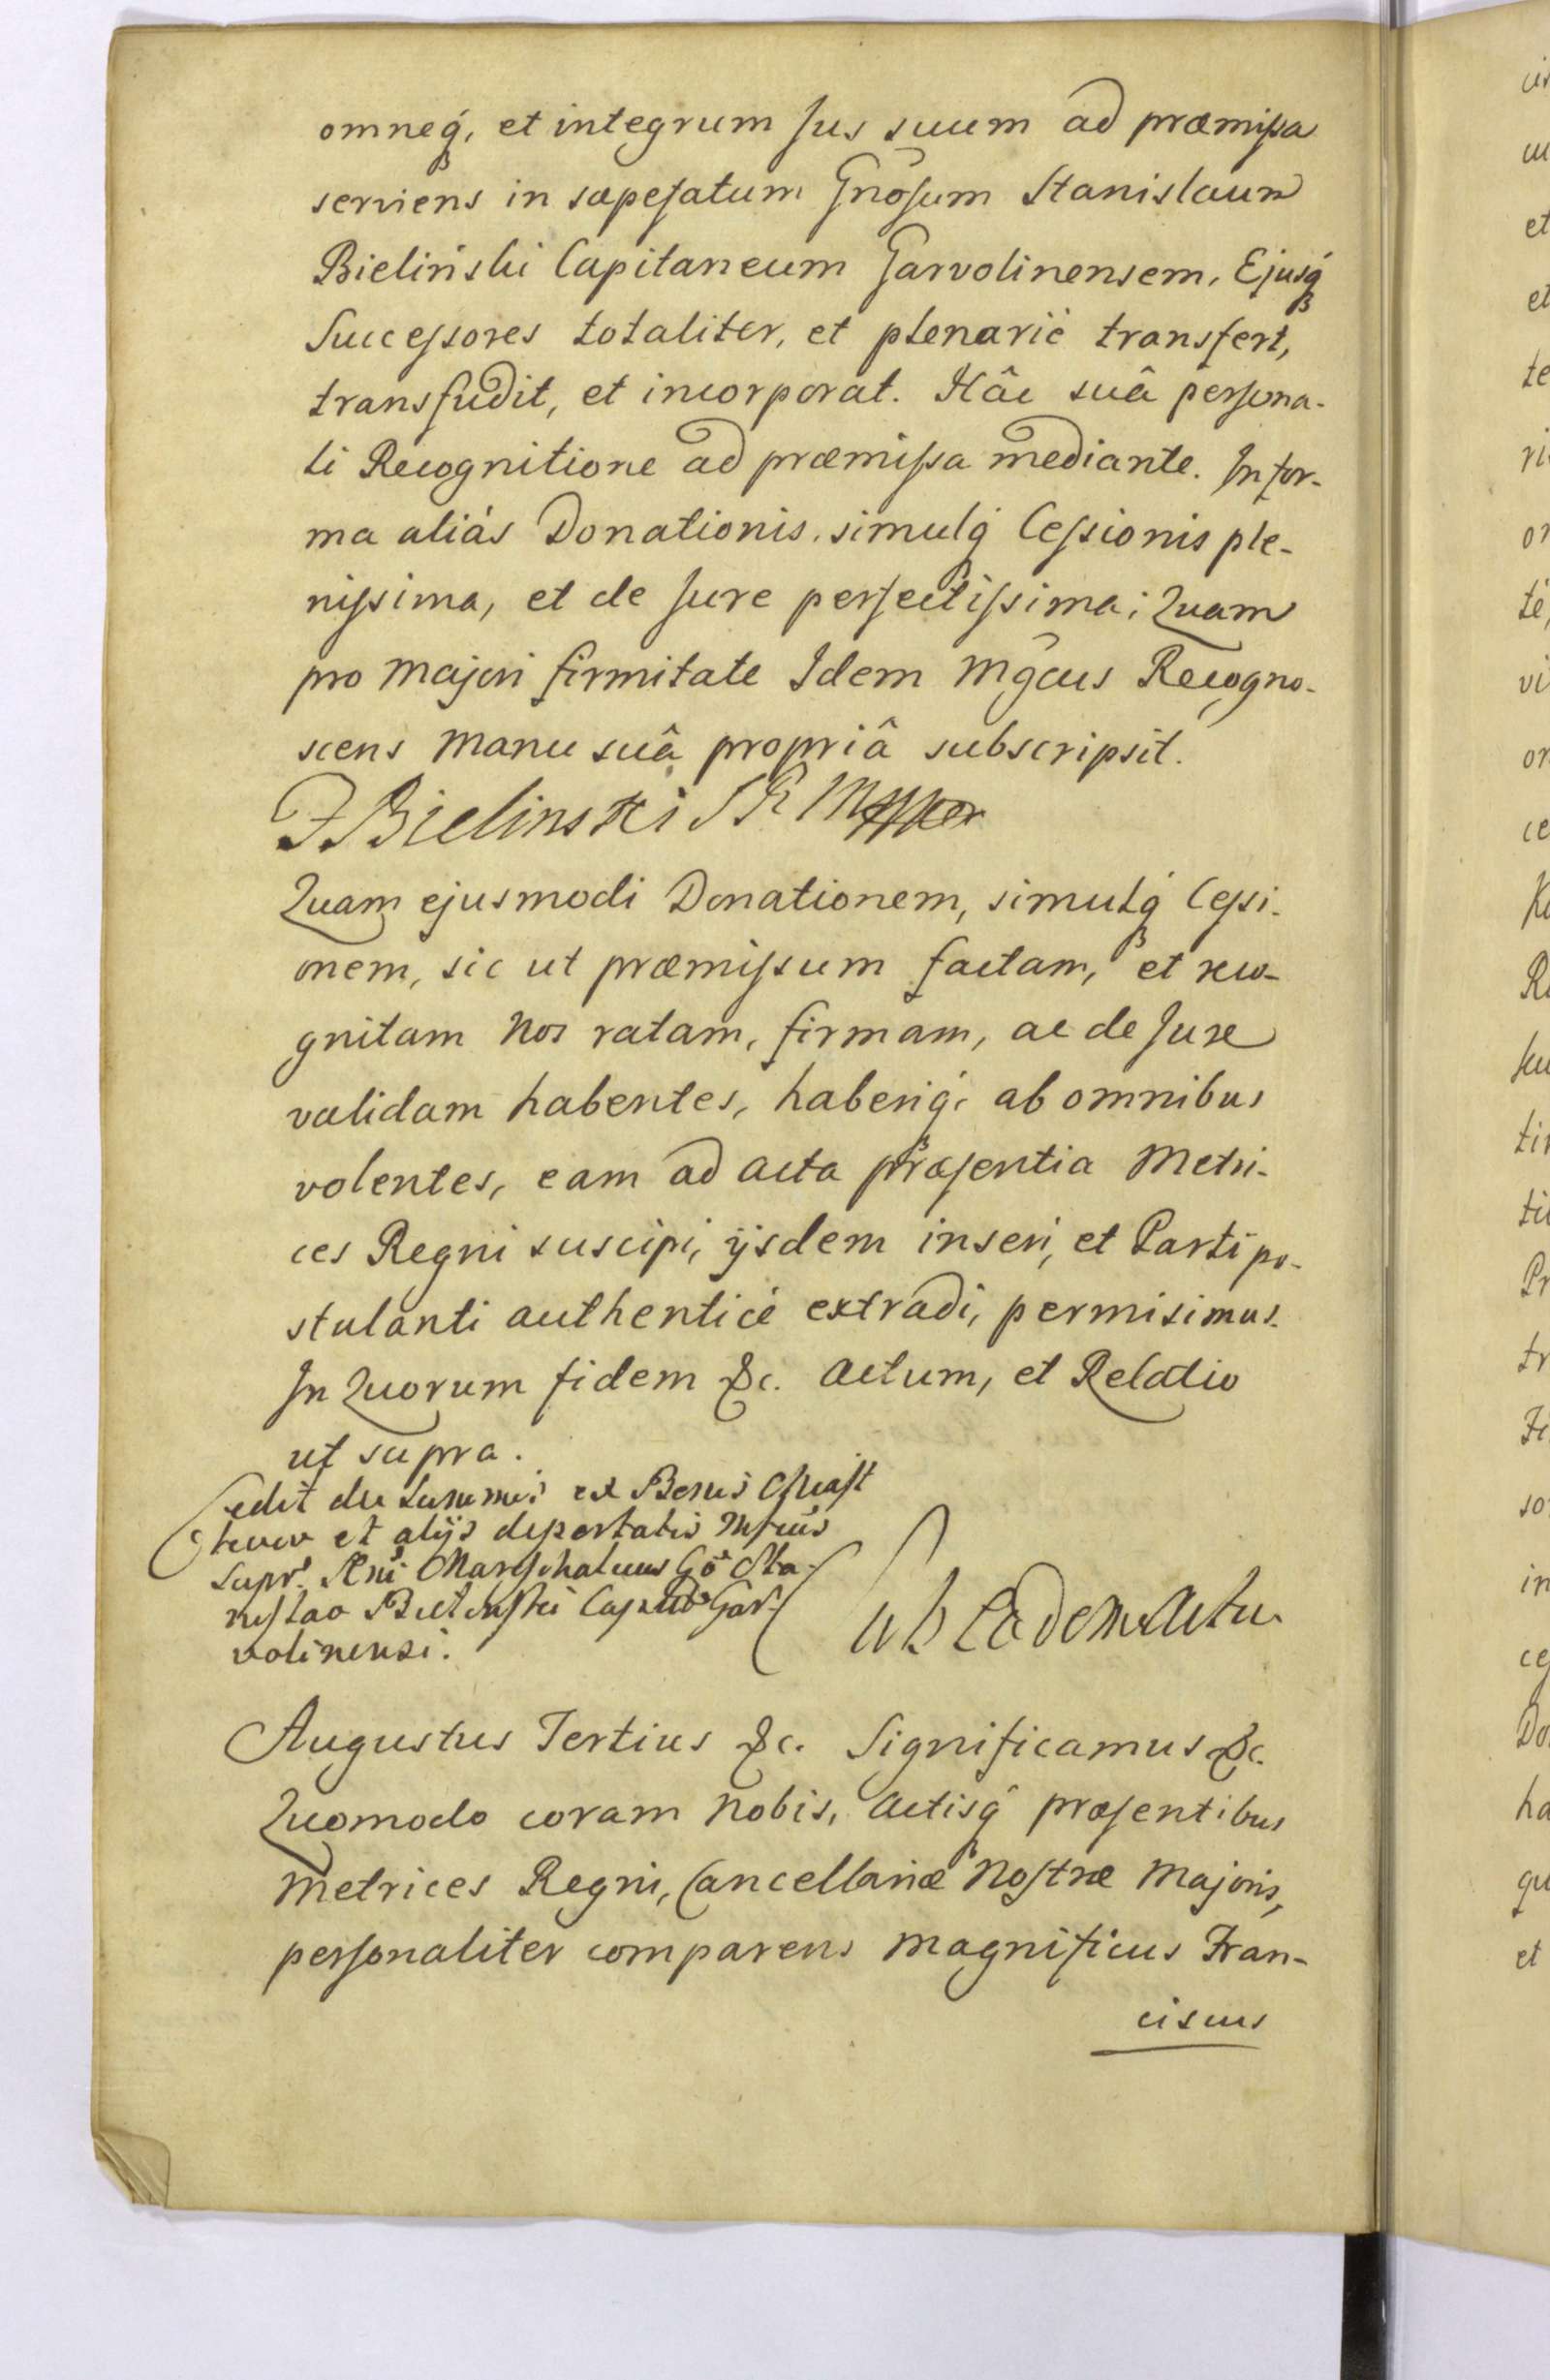 omneq́, et integrum Jus suum ad præmissa
serviens in sæpefatum Gnōsum Stanislaum
Bieliński Capitaneum Garvolinensem, Ejusq́
Successores totaliter, et plenariè transfert,
transfudit, et incorporat. Hâc suâ persona-
li Recognitione ad præmissa mediante. In for-
ma aliàs Donationis, simulq́ Cessionis ple-
nissima, et de Jure perfectissima; Quam
pro majori firmitate Idem Mg̃cus Recogno-
scens manu suâ propriâ subscripsit.
F Bielinski
Quam ejusmodi Donationem, simulq́ Cessi-
onem, sic ut præmissum factam, et reco-
gnitam Nos ratam, firmam, ac de Jure
validam habentes, haberiq́; ab omnibus
volentes, eam ad acta præsentia Metri-
ces Regni suscipi, ijsdem inseri, et Parti po-
stulanti authenticè extradi, permisimus.
In Quorum fidem &c. Actum, et Relatio
ut supra.
Cedit de summis ex Bonis
et alijs
Supr. Rni Marschalcus Gō Sta-
nislao Bielinski Gar-
volinensi.
Sub Eodem Actu
Augustus Tertius &c. Significamus &c.
Quomodo coram Nobis, Actisq́ præsentibus
Metrices Regni, Cancellariæ Nostræ Majoris,
personaliter comparens Magnificus Fran-
ciscus